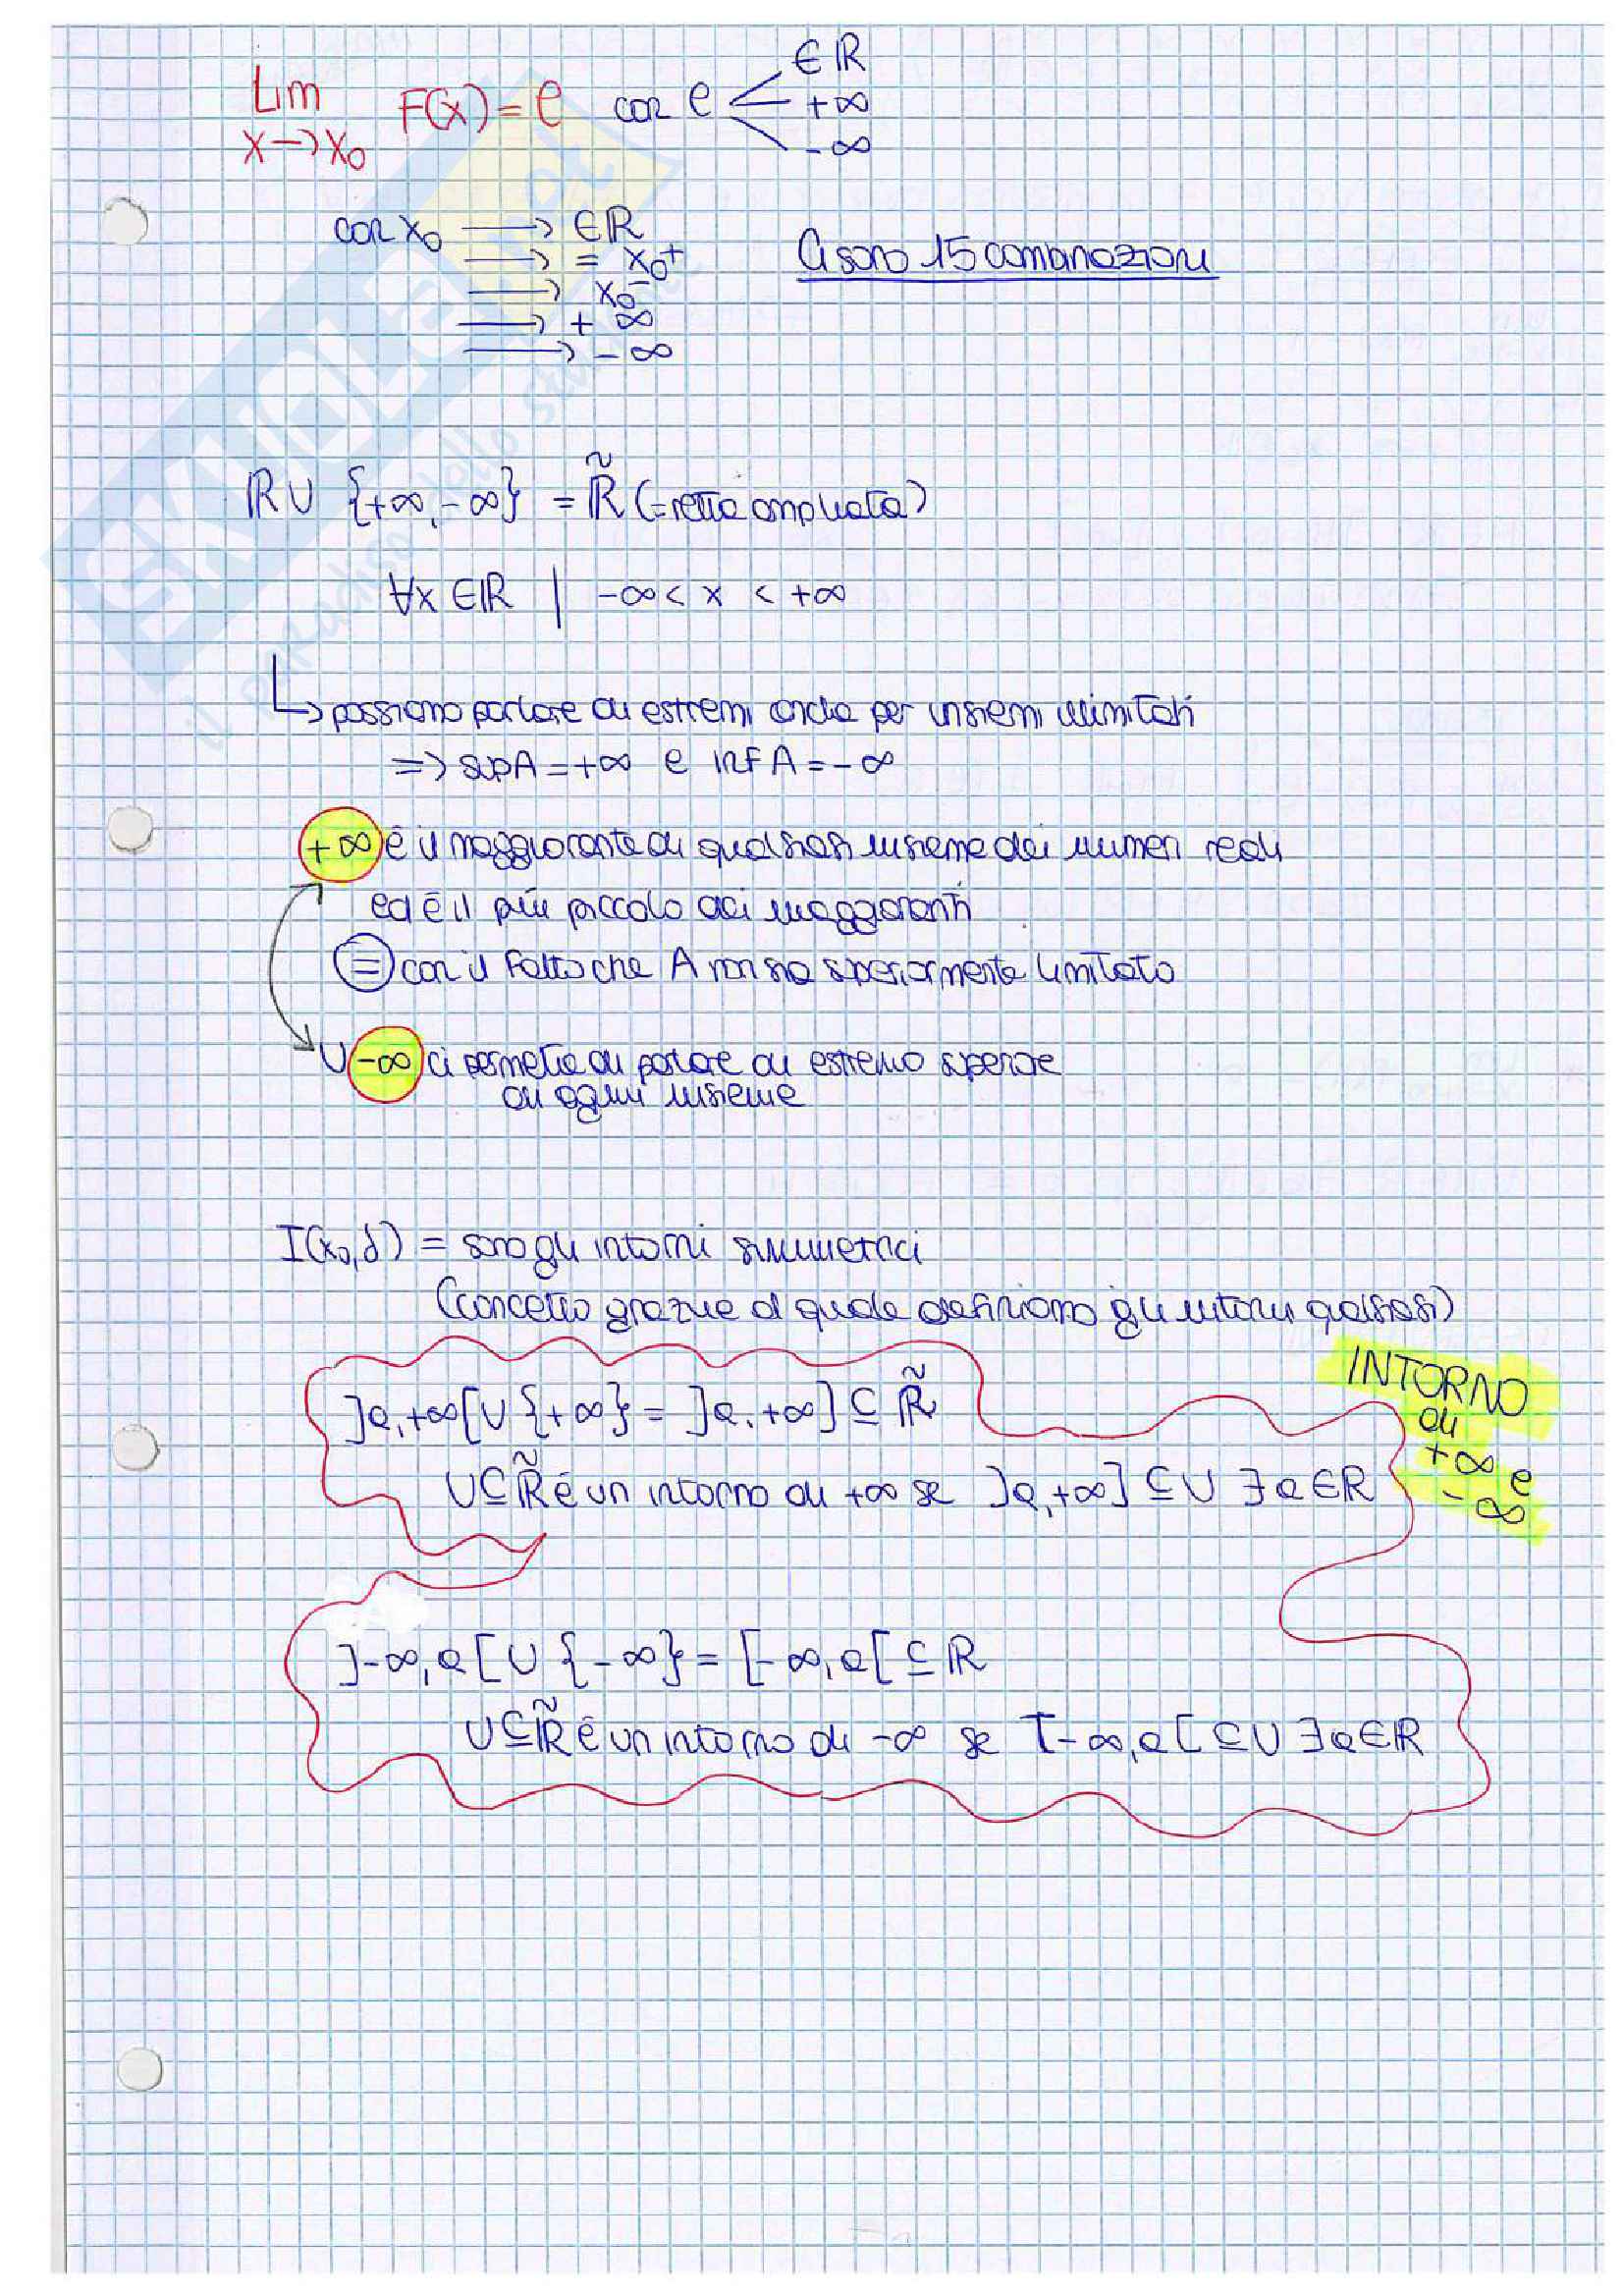 Lim F(x) = l con l ∈ℝ
x→x₀ +∞
-∞
con x₀ → ∈ℝ
→ = x₀⁺
→ x₀⁻
→ +∞
→ -∞
Ci sono 15 combinazioni
ℝ∪ {+∞,-∞} = ℝ̃ (=retta ampliata)
∀x ∈ℝ | -∞ < x < +∞
↳ possiamo parlare di estremi anche per insiemi illimitati
=> sup A = +∞ e inf A = -∞
+∞ è il maggiorante di qualsiasi insieme dei numeri reali
ed è il più piccolo dei maggioranti
= con il fatto che A non sia superiormente limitato
∪ -∞ ci permette di parlare di estremo superiore
di ogni insieme
I(x₀,δ) = sono gli intorni simmetrici
(concetto grazie al quale definiamo gli intorni qualsiasi)
INTORNO
di
+∞ e
-∞
]a,+∞[ ∪ {+∞} = ]a,+∞] ⊆ ℝ̃
U⊆ℝ̃ è un intorno di +∞ se ]a,+∞] ⊆ U ∃ a∈ℝ
]-∞,a[ ∪ {-∞} = [-∞,a[ ⊆ ℝ
U⊆ℝ̃ è un intorno di -∞ se [-∞,a[ ⊆ U ∃ a∈ℝ
SKUOLA.net
il paradiso dello studente